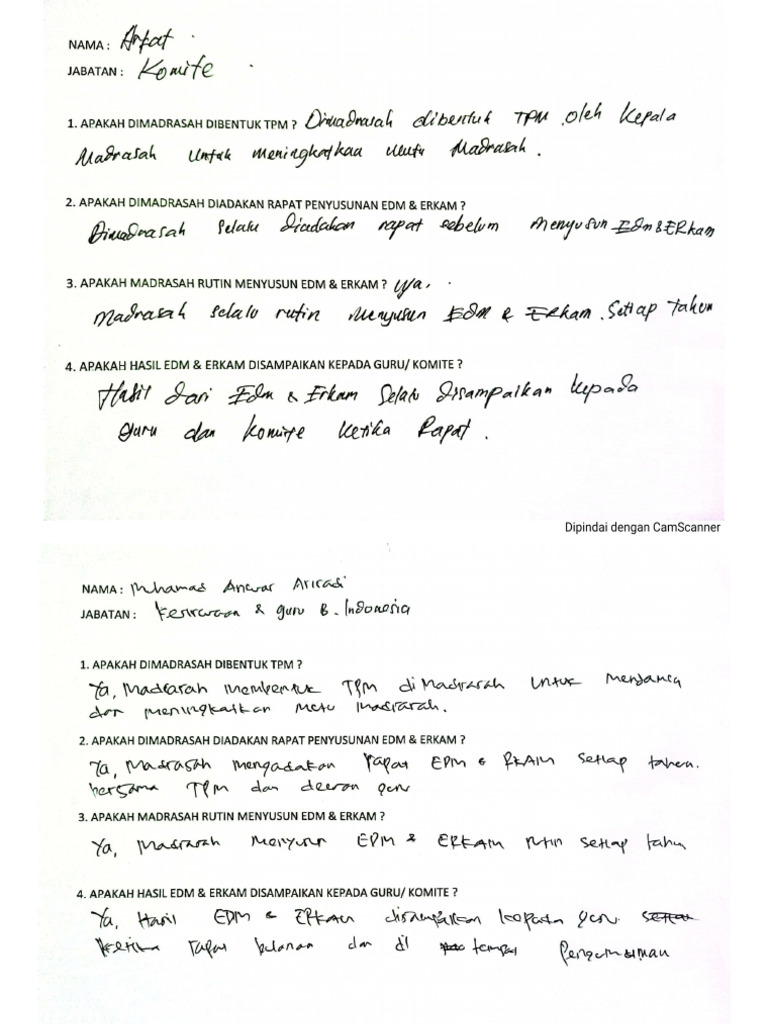 NAMA : Arfat
JABATAN : Komite
1. APAKAH DIMADRASAH DIBENTUK TPM ? Dimadrasah dibentuk TPM oleh Kepala
Madrasah untuk meningkatkan Mutu Madrasah.
2. APAKAH DIMADRASAH DIADAKAN RAPAT PENYUSUNAN EDM & ERKAM ?
Dimadrasah selalu diadakan rapat sebelum Menyusun Edm & ERkam
3. APAKAH MADRASAH RUTIN MENYUSUN EDM & ERKAM ? Iya.
Madrasah selalu rutin Menyusun Edm & Erkam. Setiap Tahun
4. APAKAH HASIL EDM & ERKAM DISAMPAIKAN KEPADA GURU/ KOMITE ?
Hasil dari Edm & Erkam Selalu disampaikan Kepada
guru dan Komite Ketika Rapat.
Dipindai dengan CamScanner
NAMA : Muhamad Anwar
JABATAN : Kesiswaan & guru B. Indonesia
1. APAKAH DIMADRASAH DIBENTUK TPM ?
Ya, Madrasah membentuk TPM di Madrasah untuk
dan meningkatkan Mutu madrasah.
2. APAKAH DIMADRASAH DIADAKAN RAPAT PENYUSUNAN EDM & ERKAM ?
Ya, Madrasah mengadakan rapat EDM & RKAM setiap tahun.
bersama TPM dan dewan guru
3. APAKAH MADRASAH RUTIN MENYUSUN EDM & ERKAM ?
Ya, Madrasah Menyusun EDM & ERKAM rutin setiap tahun
4. APAKAH HASIL EDM & ERKAM DISAMPAIKAN KEPADA GURU/ KOMITE ?
Ya, Hasil EDM & ERKAM disampaikan kepada guru
ketika rapat bulanan dan di tempat Pengumuman